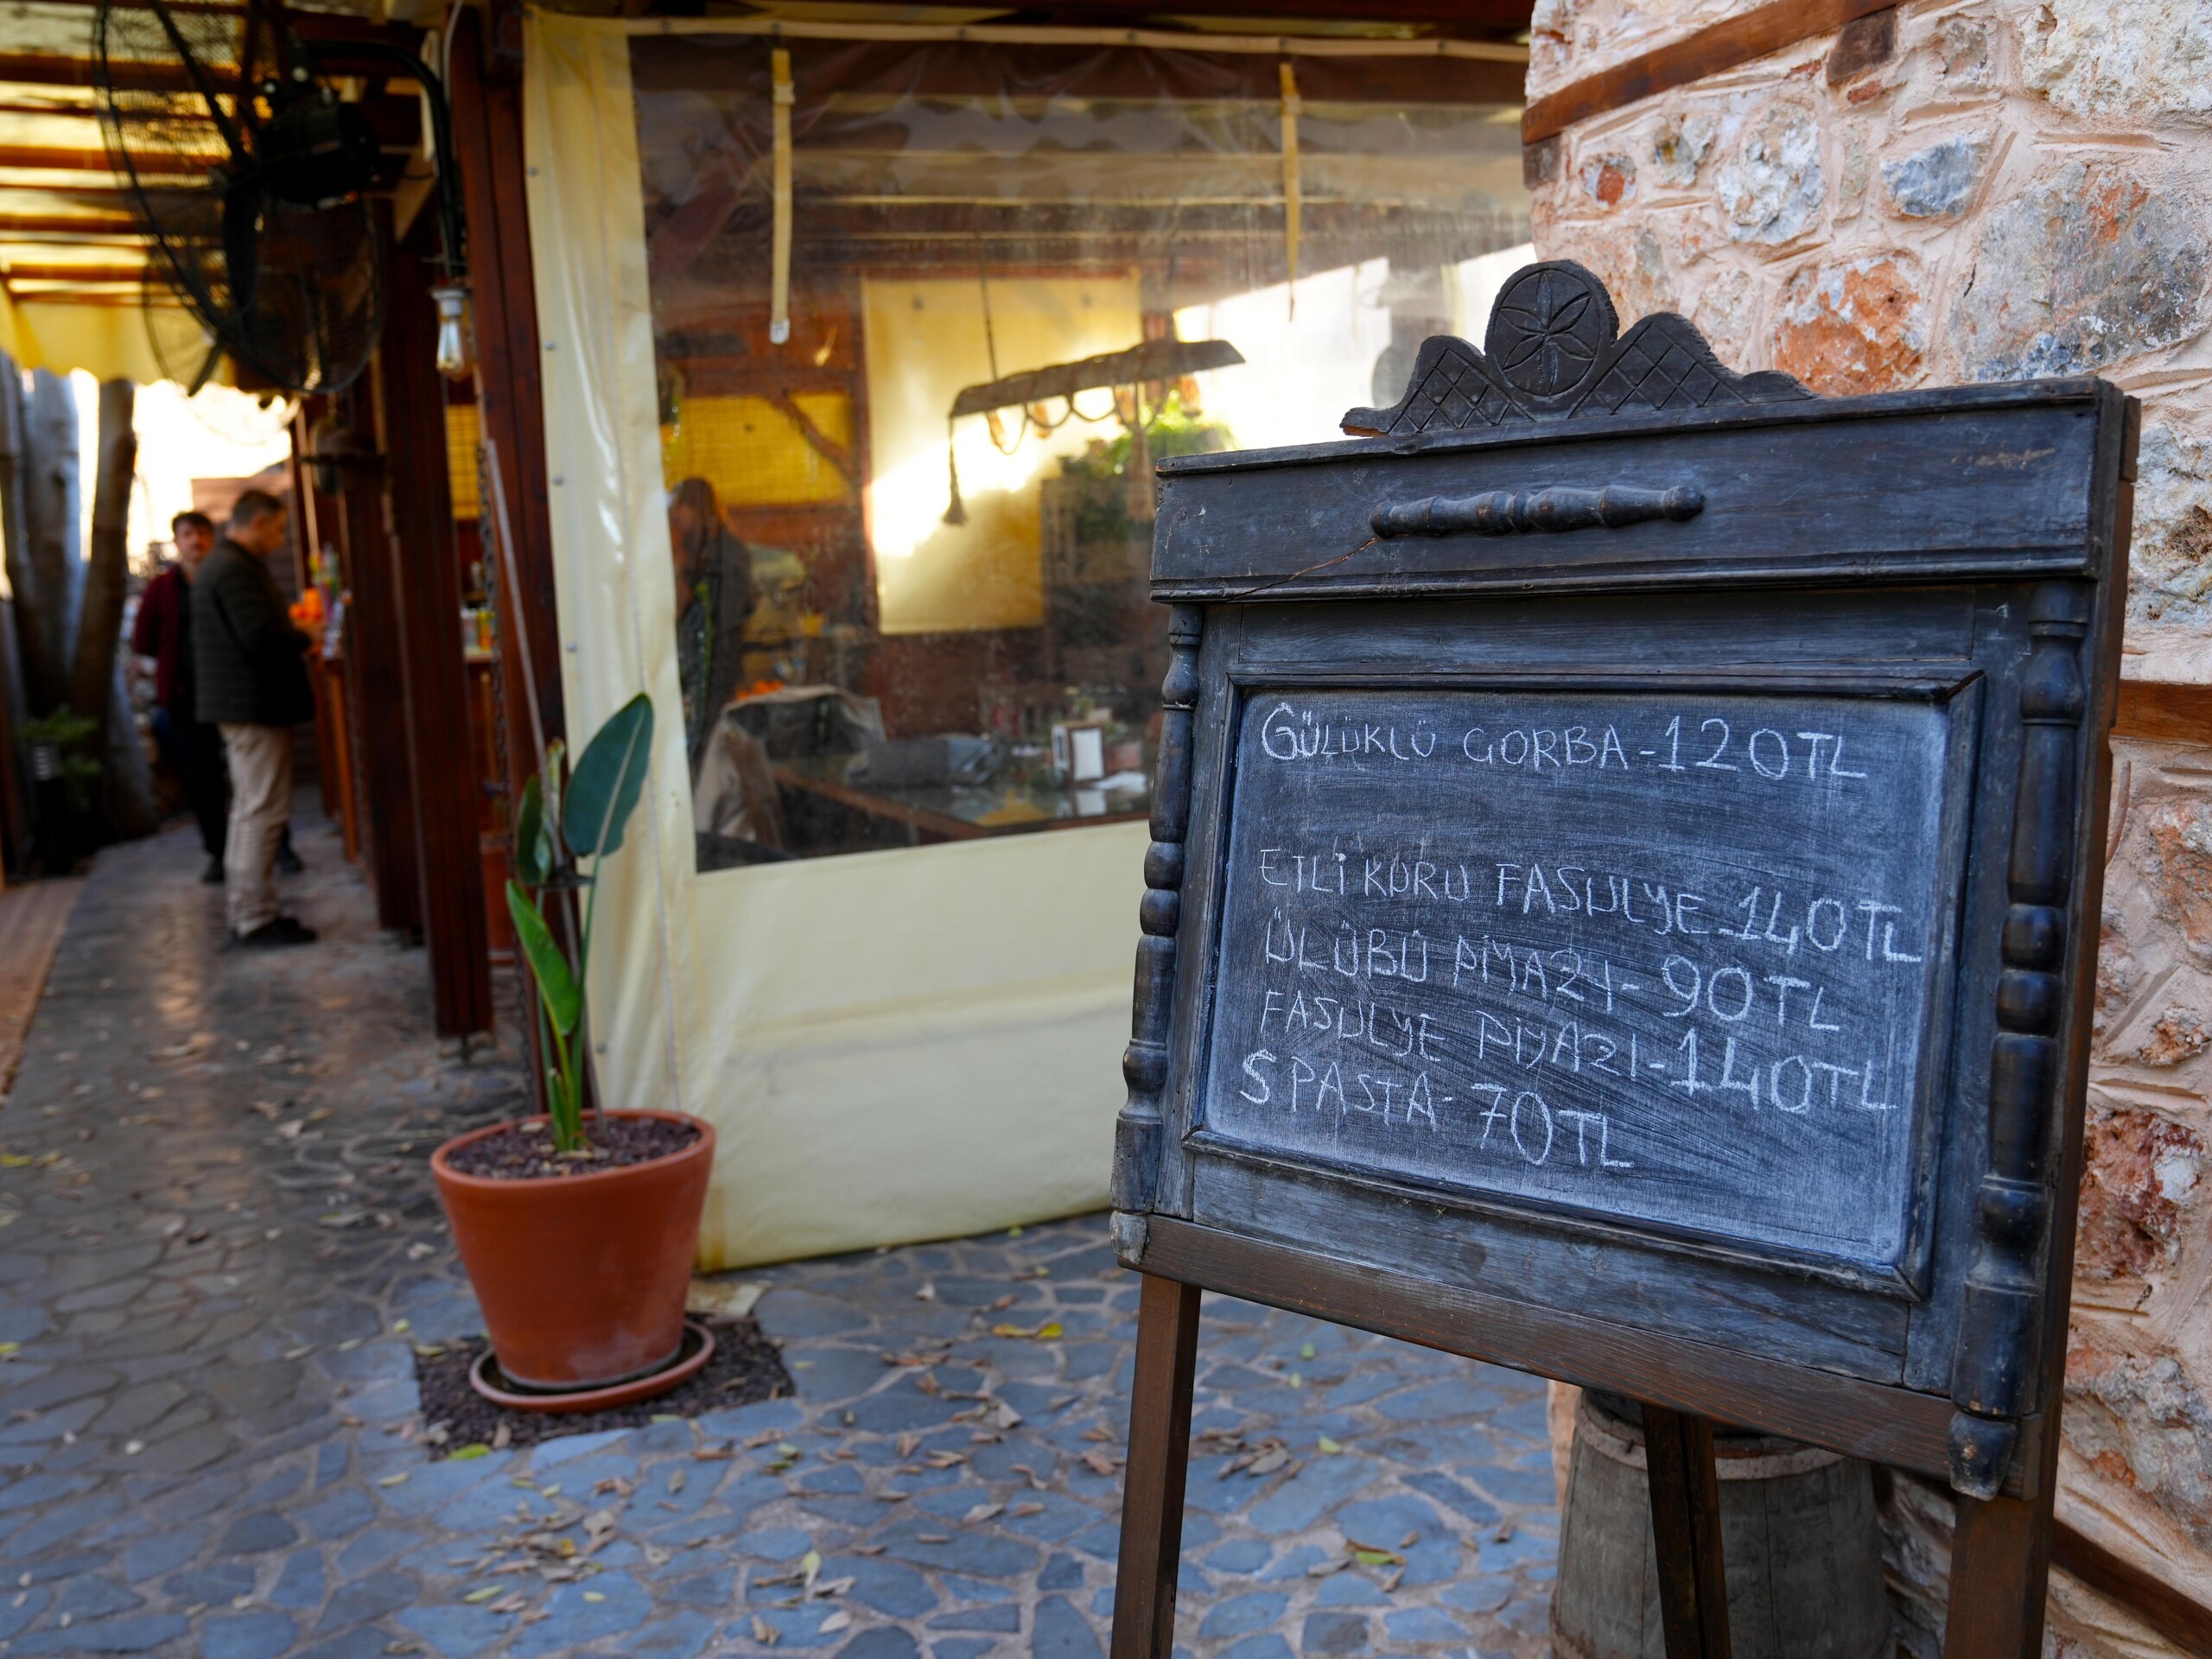 GÜLÜKLÜ GORBA-120TL
ETLİ KURU FASULYE 140TL
ÜLÜBÜ PİYAZI-90TL
FASULYE PİYAZI-140TL
SPASTA-70TL